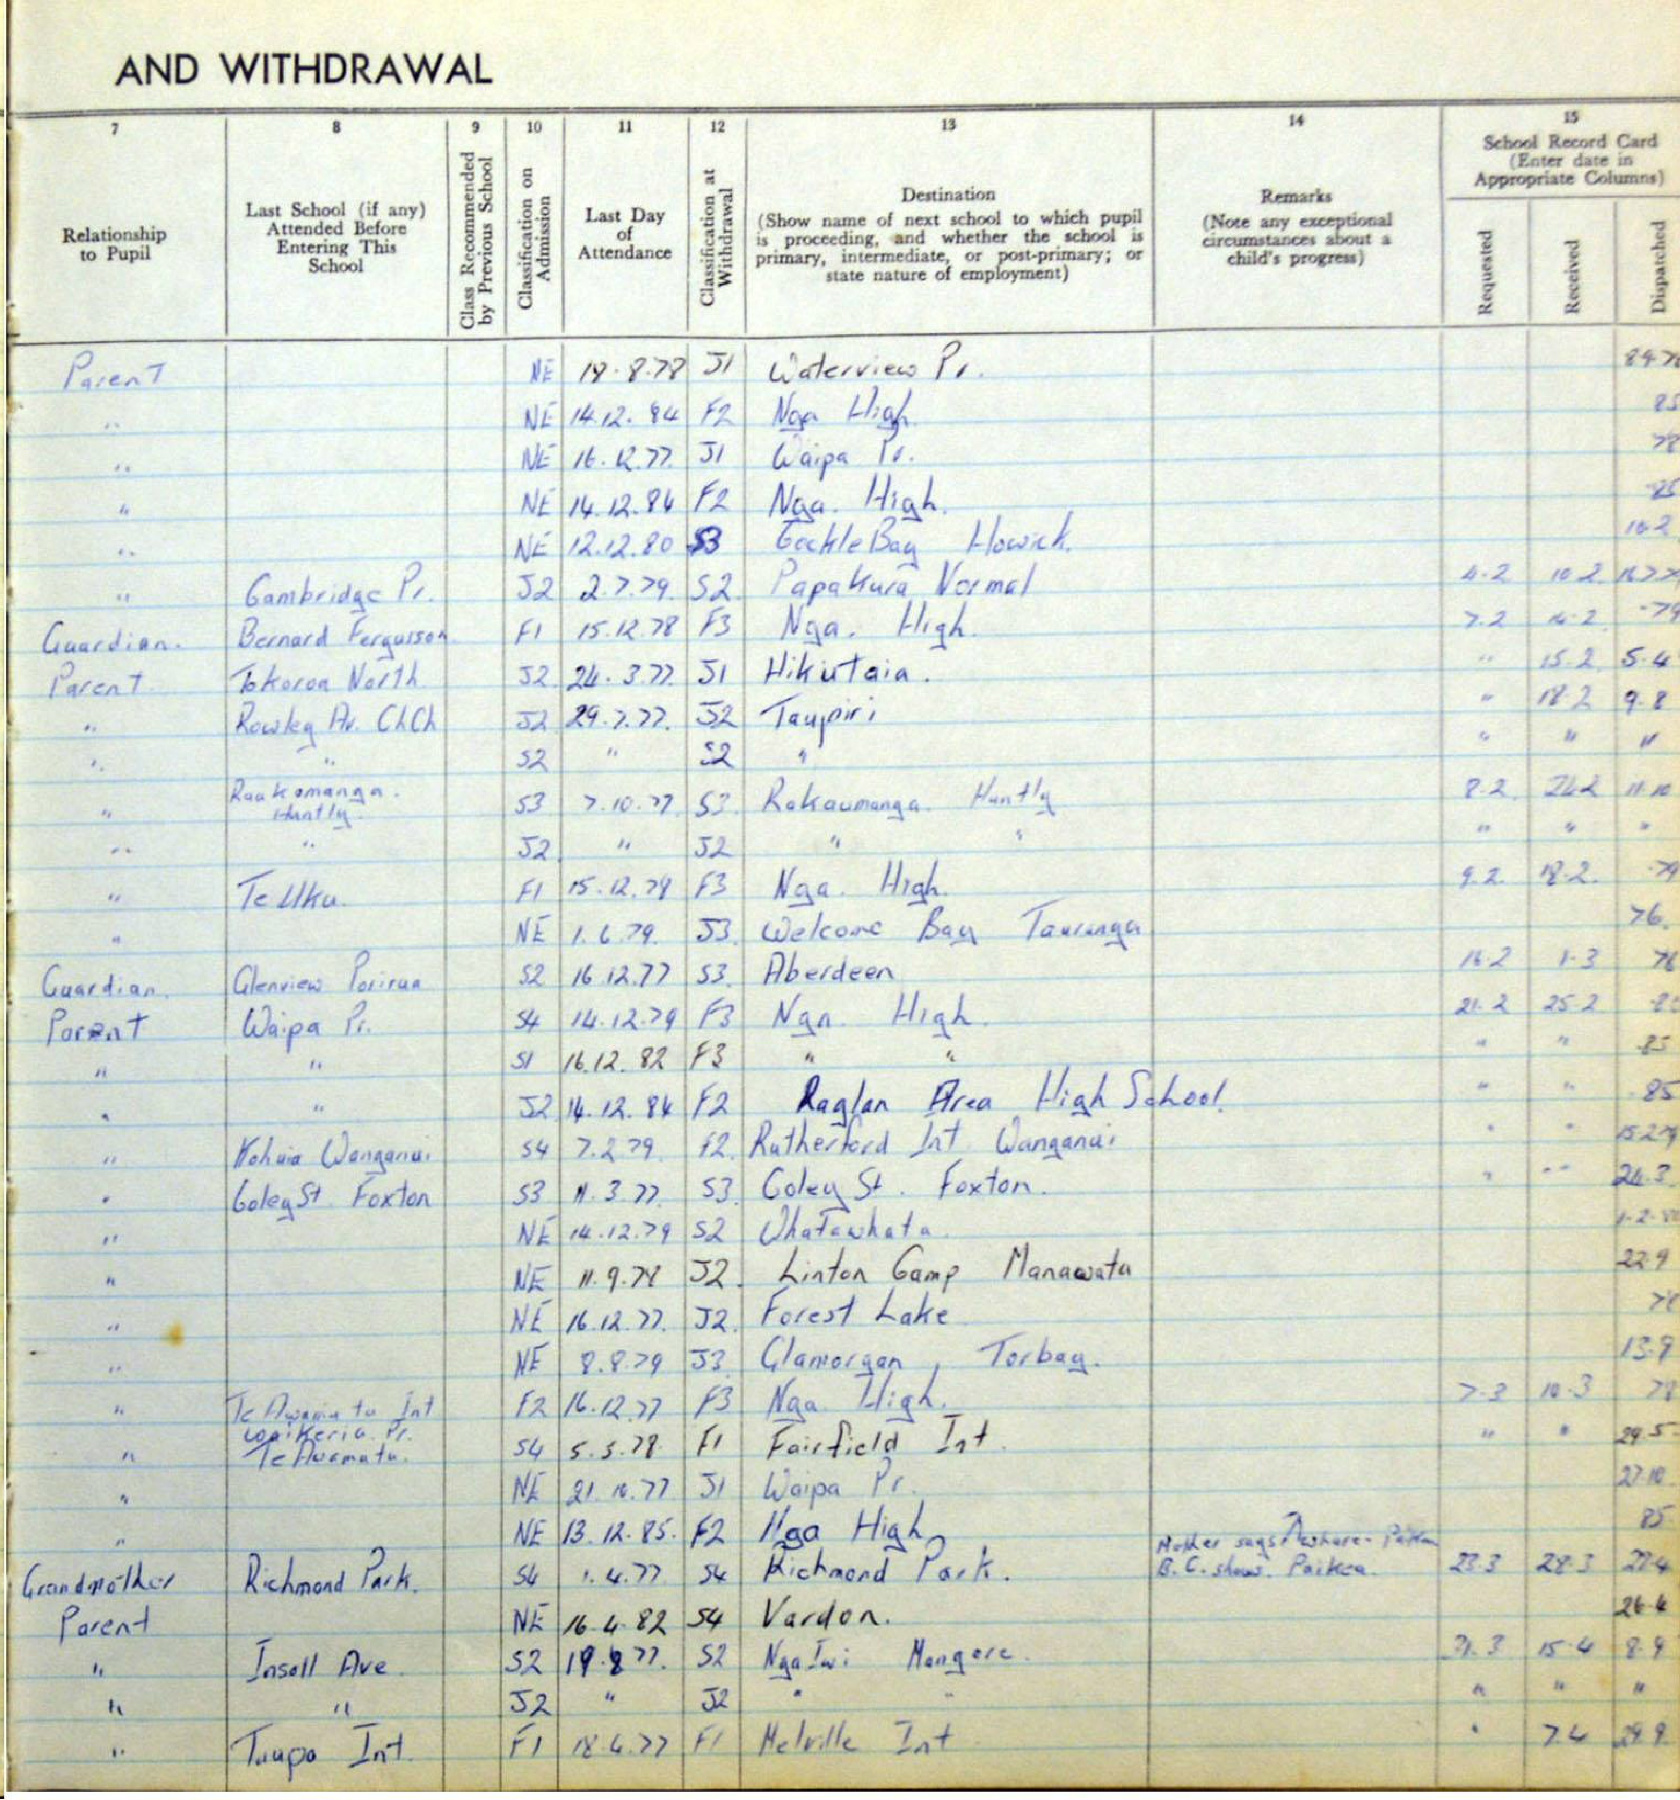 AND WITHDRAWAL
7 8 9 10 11 12 13 14 15
Relationship to Pupil
Last School (if any) Attended Before Entering This School
Class Recommended by Previous School
Classification on Admission
Last Day of Attendance
Classification at Withdrawal
Destination
(Show name of next school to which pupil is proceeding, and whether the school is primary, intermediate, or post-primary; or state nature of employment)
Remarks
(Note any exceptional circumstances about a child's progress)
School Record Card
(Enter date in Appropriate Columns)
Requested Received Dispatched
Parent NE 18.8.78 J1 Waterview Pr.
" NE 14.12.84 F2 Nga High 85
" NE 16.12.77 J1 Waipa Pr. 78
" NE 14.12.84 F2 Nga. High. 85
" NE 12.12.80 S3 Cockle Bay Howick. 10.2
" Cambridge Pr. J2 2.7.79. S2 Papakura Normal 4.2 10.2
Guardian. Bernard Fergusson F1 15.12.78 F3 Nga. High. 7.2 14.2 79
Parent Tokoroa North J2 24.3.77. J1 Hikutaia. " 15.2 5.4
" Rowley Av. ChCh J2 29.7.77. J2 Taupiri " 18.2 9.8
" " S2 " S2 " " " "
" Raakamanga. Huntly. S3 7.10.77 S3. Rakaumanga. Huntly 8.2 24.2 11.10
" " J2 " J2 " " " " "
" Te Uku. F1 15.12.78 F3 Nga. High. 9.2. 18.2. 79
" NE 1.6.79. J3. Welcome Bay Tauranga 76.
Guardian. Glenview Porirua S2 16.12.77 S3. Aberdeen 16.2 1.3 78
Parent Waipa Pr. S4 14.12.79 F3 Nga. High. 21.2 25.2
" " S1 16.12.82 F3 " " " " 85
" " J2 14.12.84 F2 Raglan Area High School. " " 85
" Kohuia Wanganui S4 7.2.79. F2. Rutherford Int Wanganui " " 15.2.79
" Coley St. Foxton S3 11.3.77. S3. Coley St. Foxton. " " 24.3
" NE 14.12.79 S2 Whatawhata.
" NE 11.9.78 J2. Linton Camp Manawatu 22.9
" NE 16.12.77. J2. Forest Lake 78
" NE 8.8.79 J3 Glamorgan, Torbay. 13.9
" Te Awamutu Int F2 16.12.77 F3 Nga High. 7.3 10.3 78
" Waikeria Pr. Te Awamutu. S4 5.5.78. F1 Fairfield Int. " " 29.5
" NE 21.10.77 J1 Waipa Pr. 27.10
" NE 13.12.85. F2 Nga High 85
Mother says
Grandmother Richmond Park. S4 1.4.77 S4 Richmond Park. B.C. shows. Paikea. 23.3 28.3 22.4
Parent NE 16.4.82 S4 Vardon. 26.4
" Insoll Ave. S2 19.8.77. S2 Nga Iwi Mangere. 31.3 15.4 8.9
" " J2 " J2 " " " " "
" Taupo Int. F1 18.4.77 F1 Melville Int " 7.4 29.9